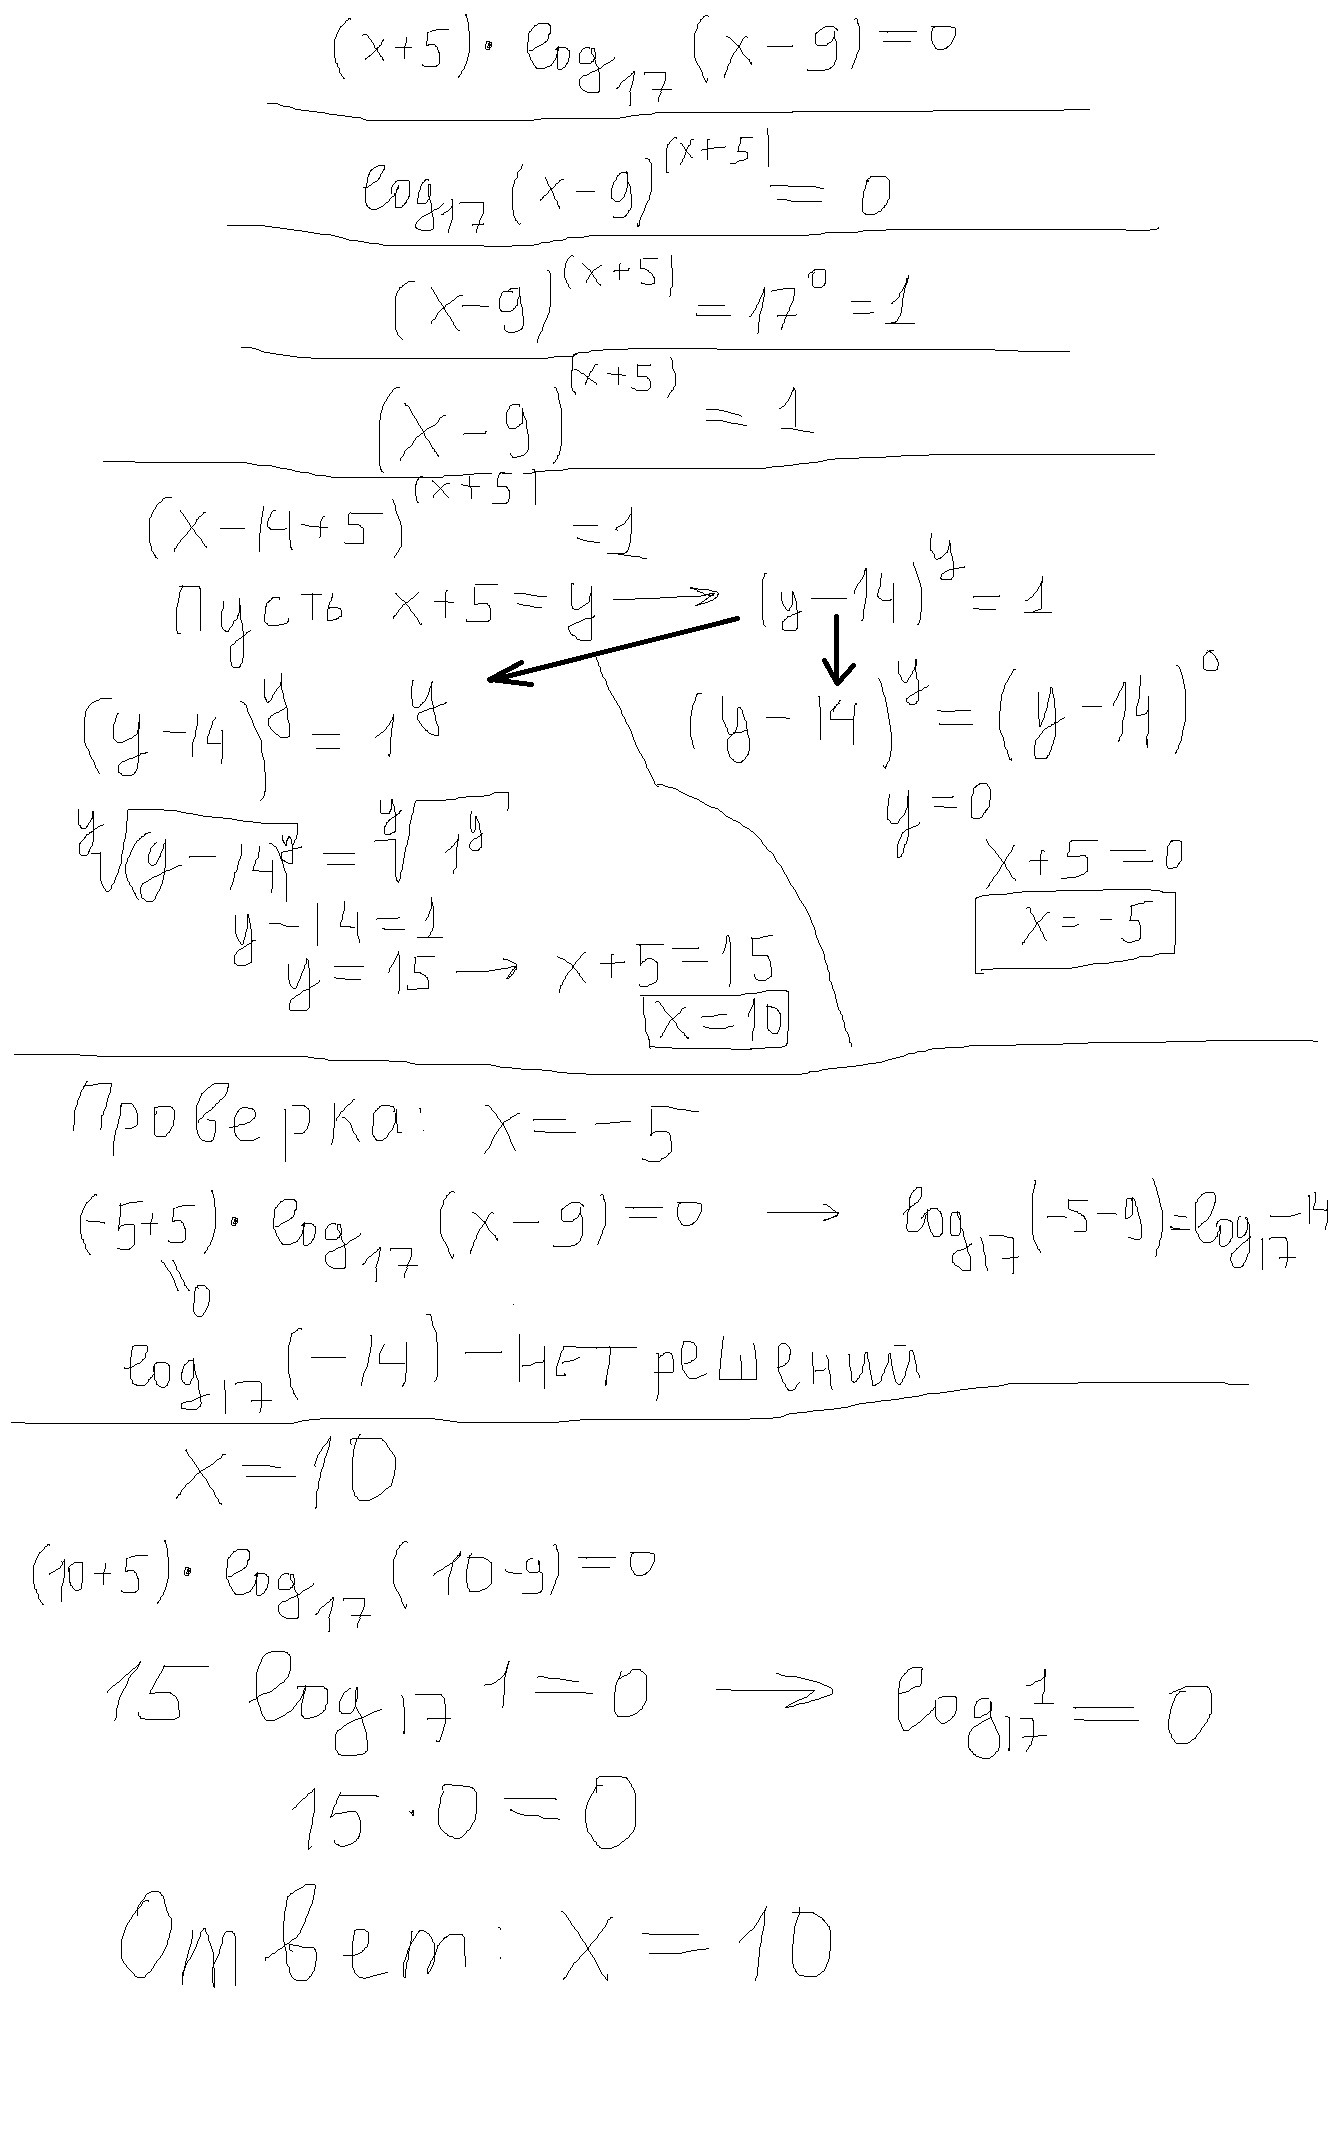 (x+5)·log₁₇(x-9)=0
log₁₇(x-9)^(x+5)=0
(x-9)^(x+5)=17⁰=1
(x-9)^(x+5)=1
(x-14+5)^(x+5)=1
Пусть x+5=y → (y-14)^y=1
(y-14)^y=1^y
(y-14)^y=(y-14)⁰
y=0
x+5=0
x=-5
ʸ√(y-14)^y=ʸ√1^y
y-14=1
y=15 → x+5=15
x=10
Проверка: x=-5
(-5+5)·log₁₇(x-9)=0 → log₁₇(-5-9)=log₁₇-14
=0
log₁₇(-14)-нет решений
x=10
(10+5)·log₁₇(10-9)=0
15 log₁₇1=0 → log₁₇1=0
15·0=0
Ответ: x=10